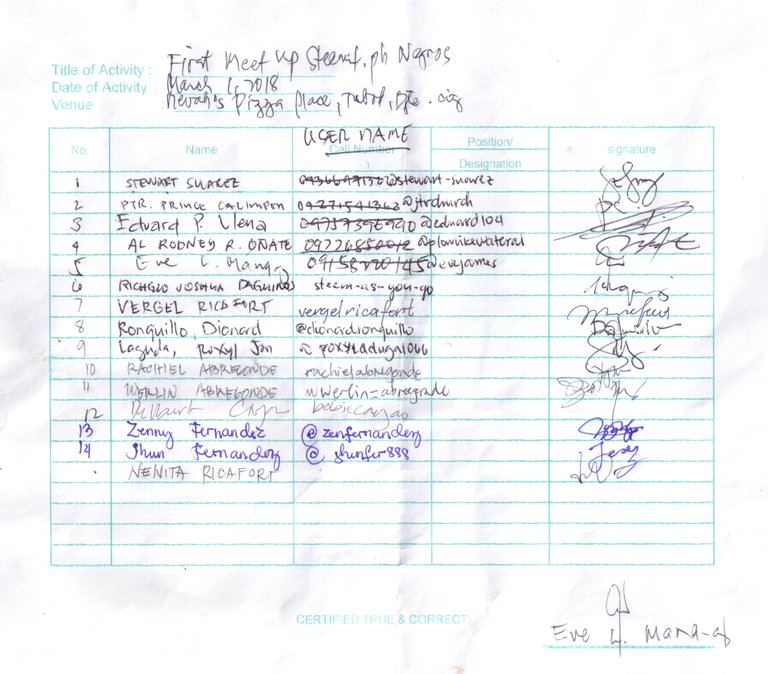 Title of Activity : First Meet Up Steemit.ph Negros
Date of Activity : March 1, 2018
Venue Nevah's Pizza Place,
USER NAME
No. Name Cell Number Position/ Designation signature
1 STEWART SUAREZ @stewart-suarez
2 PTR. PRINCE CALIMPON @jtrdmrch
3 Edward P. Llena @edward104
4 AL RODNEY R. OÑATE
5 Eve L. @evejames
6 RICHGLO JOSHUA steem-as-you-go
7 VERGEL RICAFORT vergelricafort
8 Ronquillo, Dionard @dionardronquillo
9 Jon
10 RACHIEL ABREGONDE rachielabregonde
11 WERLIN ABREGONDE
12
13 Zenny Fernandez @zenfernandez
14 Jhun Fernandez @ jhunfer888
NENITA RICAFORT
CERTIFIED TRUE & CORRECT:
Eve L. Mana-ay